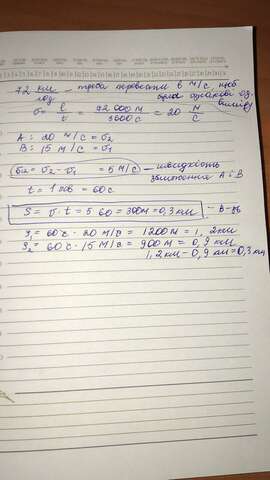 72 км/год – треба перевести в м/с щоб
були однакові од. виміру
v = l/t = 72 000 м / 3600 с = 20 м/с
A: 20 м/с = v₂
B: 15 м/с = v₁
v₂ – v₁ = 5 м/с – швидкість
зближення A і B
t = 1 хв = 60 с
S = v · t = 5 · 60 = 300 м = 0,3 км – в-дь
S₁ = 60 с · 20 м/с = 1200 м = 1,2 км
S₂ = 60 с · 15 м/с = 900 м = 0,9 км
1,2 км – 0,9 км = 0,3 км